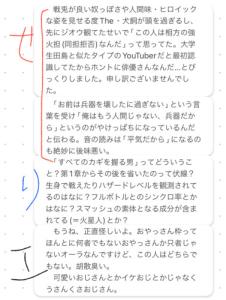 戦兎が良い奴っぽさや人間味・ヒロイック
な姿を見せる度 The・戯が頭を過るし、
先にジオウ観てたせいで「この人は相方の強
火担 (同担拒否) なんだ」って思ってた。大学
生田島と似たタイプの YouTuber だと最初認
識してたからホントに俳優さんなんだ…とび
っくりしました。申し訳ございませんでし
た。
「お前は兵器を壊したに過ぎない」という言
葉を受け「俺はもう人間じゃない、兵器だか
ら」というのがやけっぱちになっているんだ
と伝わる。音の読みは「平気だから」になるの
も絶妙に後味悪い。
「すべてのカギを握る男」ってどういうこ
と？第1章からその後を省いたのって伏線？
生身で戦えたりハザードレベルを観測されて
るのはなに？フルボトルとのシンクロ率とか
はなに？スマッシュの素体となる成分が含ま
れてる (＝火星人) とか？
もうね、正直怪しいよ。おやっさん枠って
ほんとに何者でもないおやっさんか只者じゃ
ないオーラなんですけど、この人はどちらで
もない。胡散臭い。
可愛いおじさんとかイケおじとかじゃなく
うさんくさおじさん。
せ
り
エ